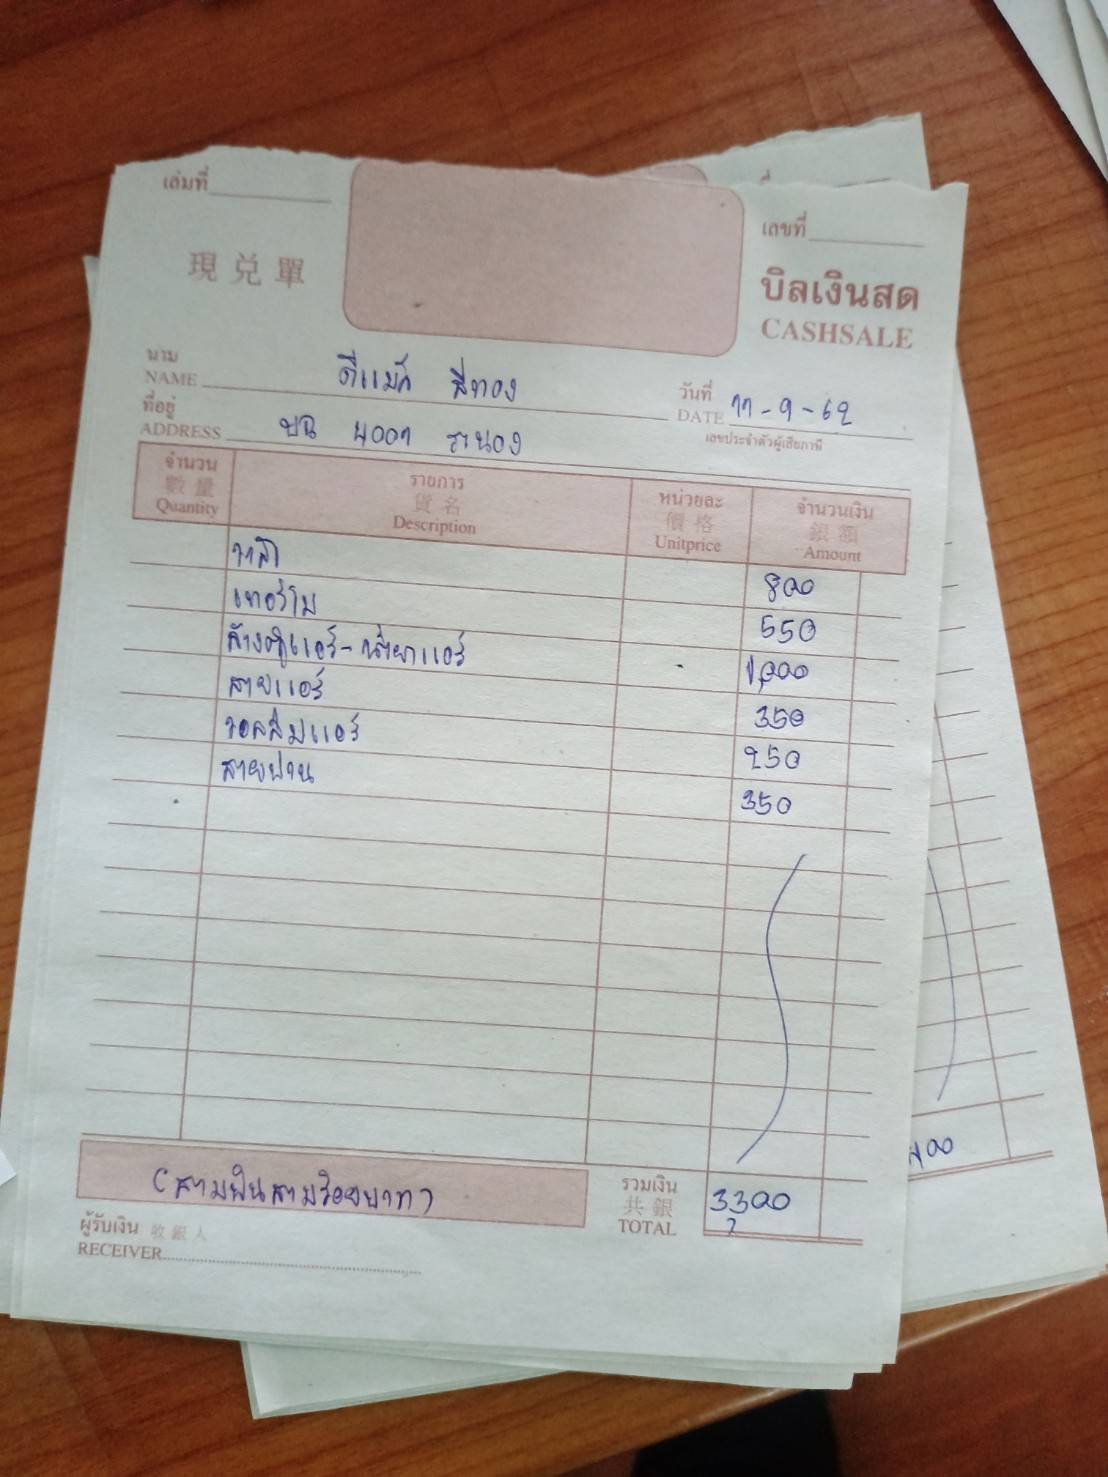 เล่มที่
เลขที่
現兑單
บิลเงินสด
CASHSALE
นาม
NAME ดีแม๊ก สีทอง
วันที่
DATE 11-9-62
ที่อยู่
ADDRESS บฉ 4001 ระนอง
เลขประจำตัวผู้เสียภาษี
จำนวน รายการ หน่วยละ จำนวนเงิน
數量 貨名 價格 銀額
Quantity Description Unitprice Amount
วาล์ว 800
เทอร์โม 550
ล้างตู้แอร์-น้ำยาแอร์ 1,000
สายแอร์ 350
วอลลุ่มแอร์ 250
สายพาน 350
(สามพันสามร้อยบาท)
รวมเงิน
共銀
TOTAL 3300
ผู้รับเงิน 收銀人
RECEIVER